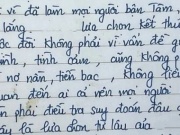 vì đã làm mọi người bận Tâm,
lặng lựa chọn kết thú
ộc đời không phải vì vấn đề q
ình, tình cảm, cũng không
nợ nần, tiền bạc, không liê
quan đến ai cả nên mọi người
phải điều tra suy đoán đâu
ây là lựa chọn từ lâu của